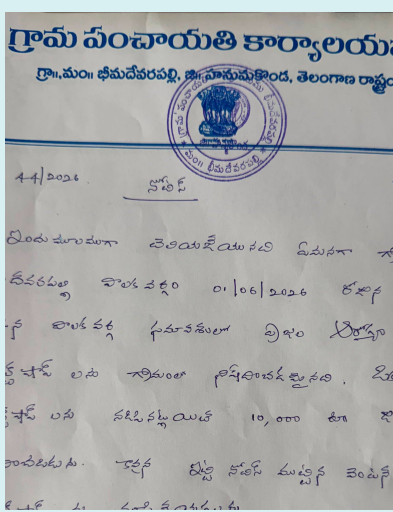 గ్రామ పంచాయతి కార్యాలయ
గ్రా॥,మం॥ భీమదేవరపల్లి, జి॥హనుమకొండ, తెలంగాణ రాష్ట్రం
44/2026
నోటీస్
ఇందుమూలముగా తెలియజేయునది ఏమనగా
దేవరపల్లి పాలకవర్గం 01/06/2026 రోజున
పాలకవర్గ సమావేశంలో ప్రజల ఆరోగ్యా
షాప్ లను గ్రామంలో నిషేదించడమైనది.
షాప్ లను నడిపినట్లయితే 10,000 రూ
కావున ఇట్టి నోటీస్ ముట్టిన వెంటనే